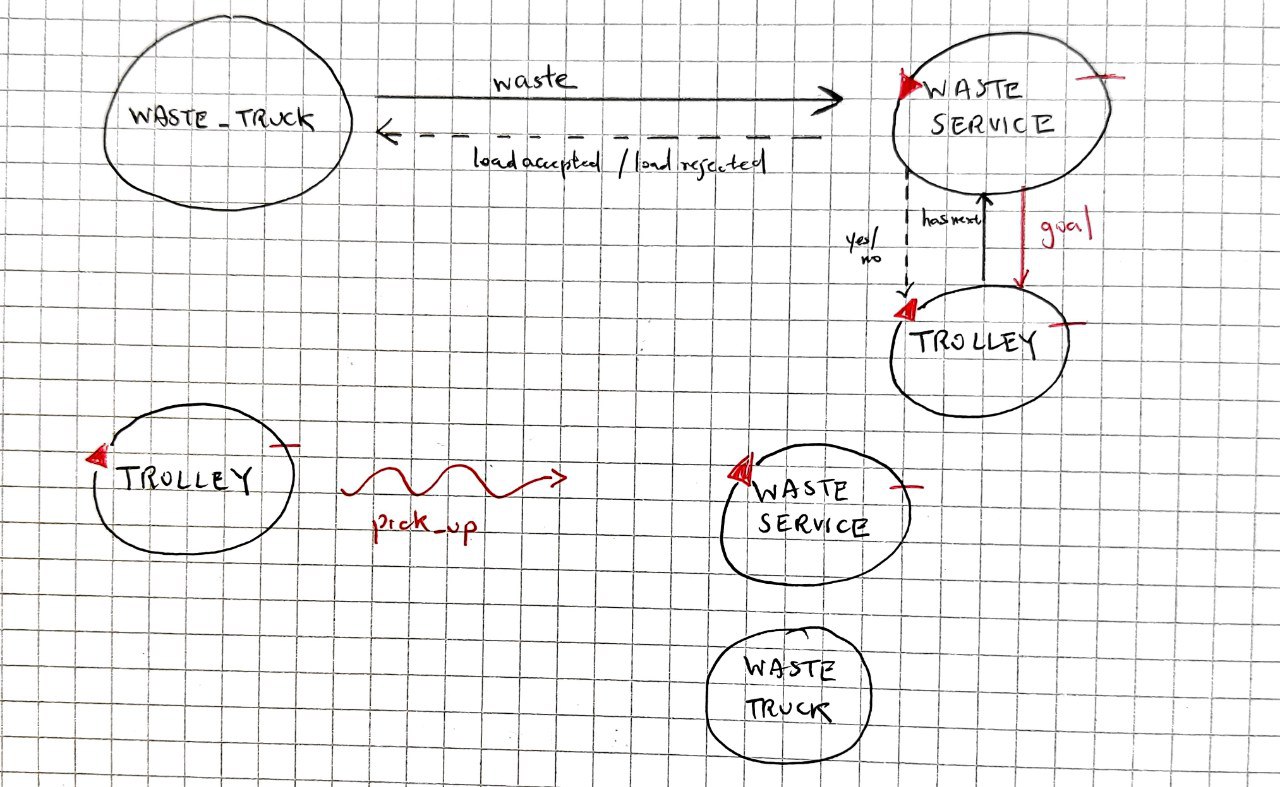 WASTE_TRUCK
waste
loadaccepted / load rejected
WASTE
SERVICE
yes/
no
hasnext
goal
TROLLEY
TROLLEY
pick_up
WASTE
SERVICE
WASTE
TRUCK